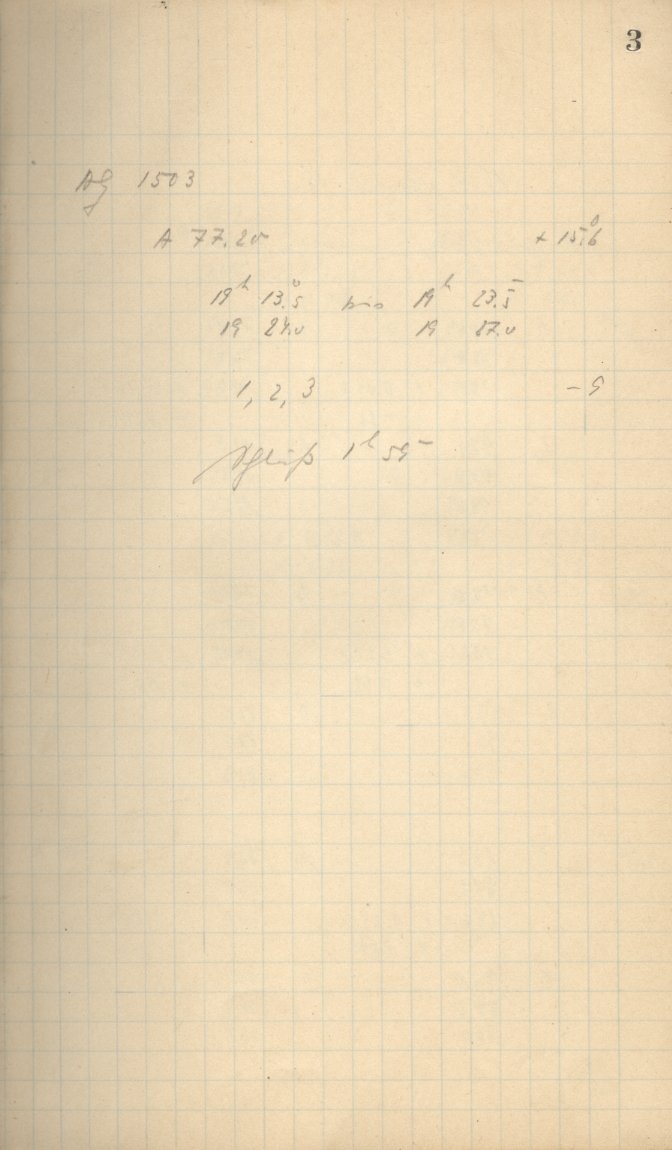 3
Ag 1503
A 77.20 + 15.6
19h 13.5 bis 19h 23.5
19 24.0 19 87.0
1, 2, 3 - 9
Schluß 1h 59m